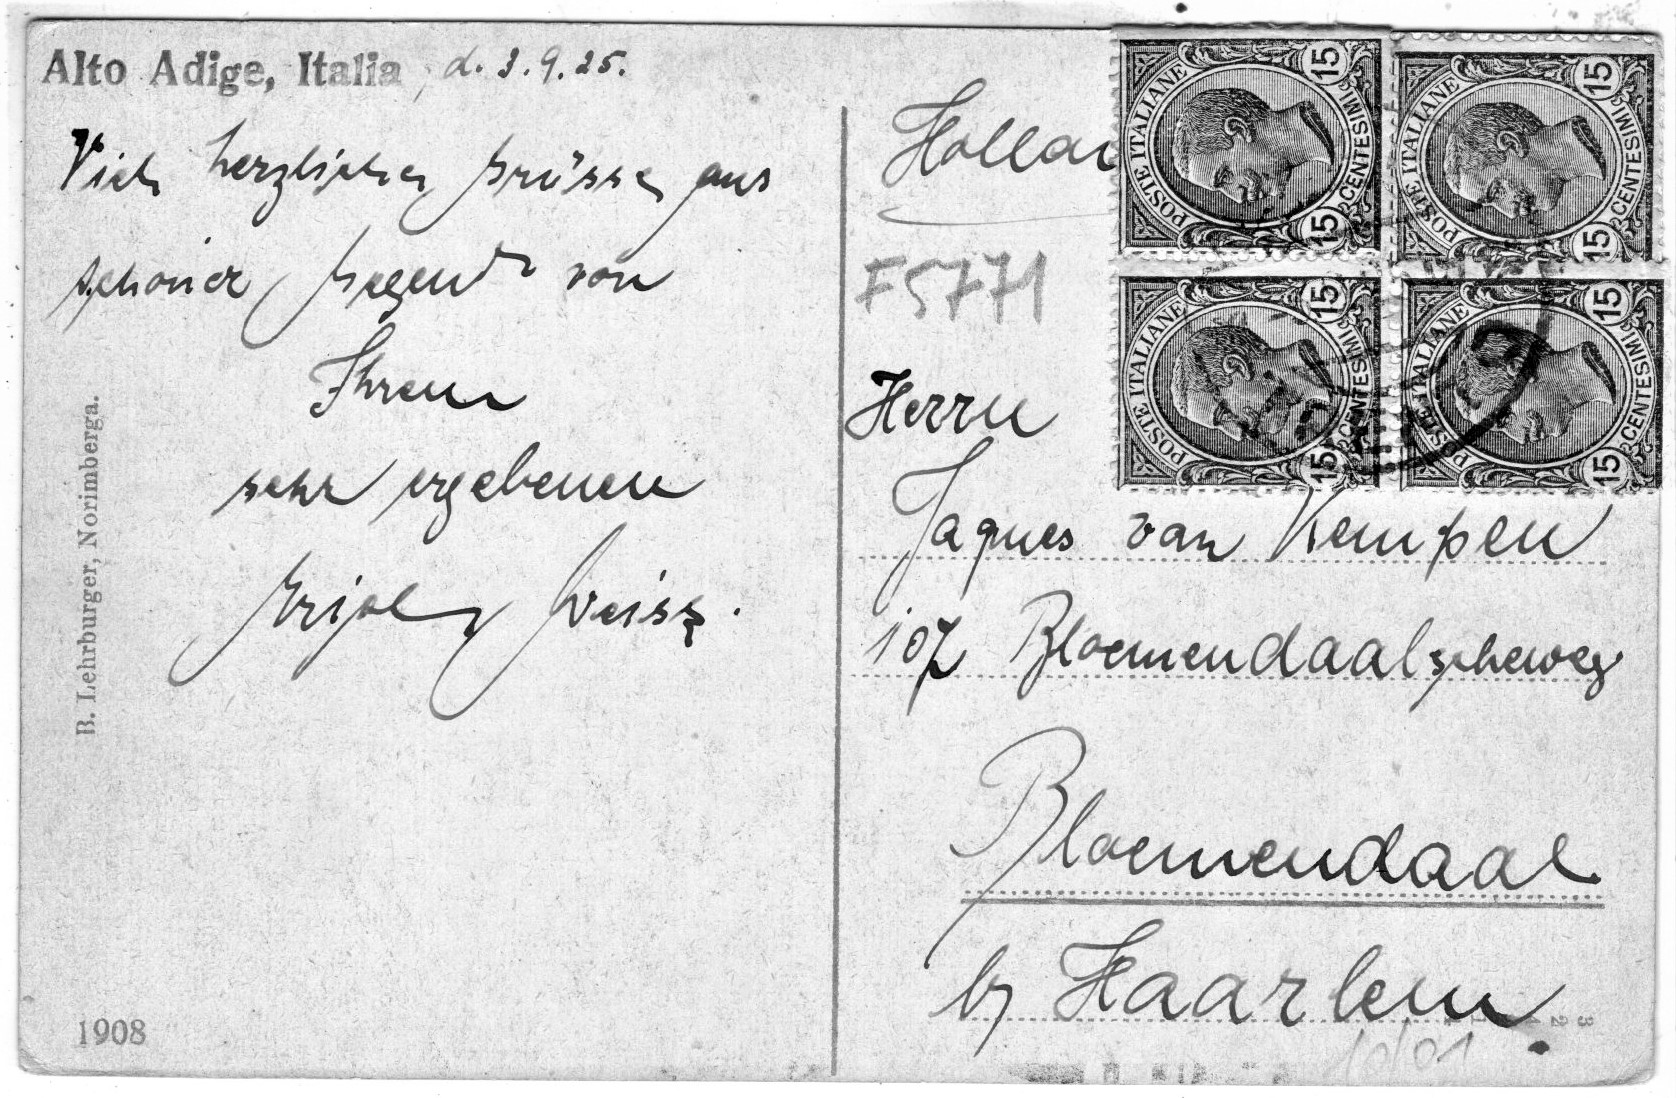 Alto Adige, Italia, d. 3.9.25.
Viele herzlichen Grüsse aus
schöner Gegend von
Ihrem
sehr ergebenen
Weisz.
B. Lehrburger, Norimberga.
1908
Hollan
F5771
POSTE ITALIANE 15 CENTESIMI 15
POSTE ITALIANE 15 CENTESIMI 15
POSTE ITALIANE 15 CENTESIMI 15
POSTE ITALIANE 15 CENTESIMI 15
Herrn
Jaques van Kempen
107 Bloemendaalscheweg
Bloemendaal
by Haarlem.